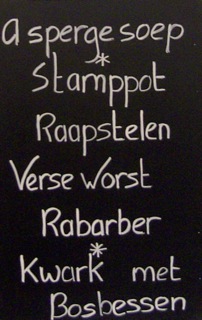 Aspergesoep
*
Stamppot
Raapstelen
Verse Worst
Rabarber
*
Kwark met
Bosbessen